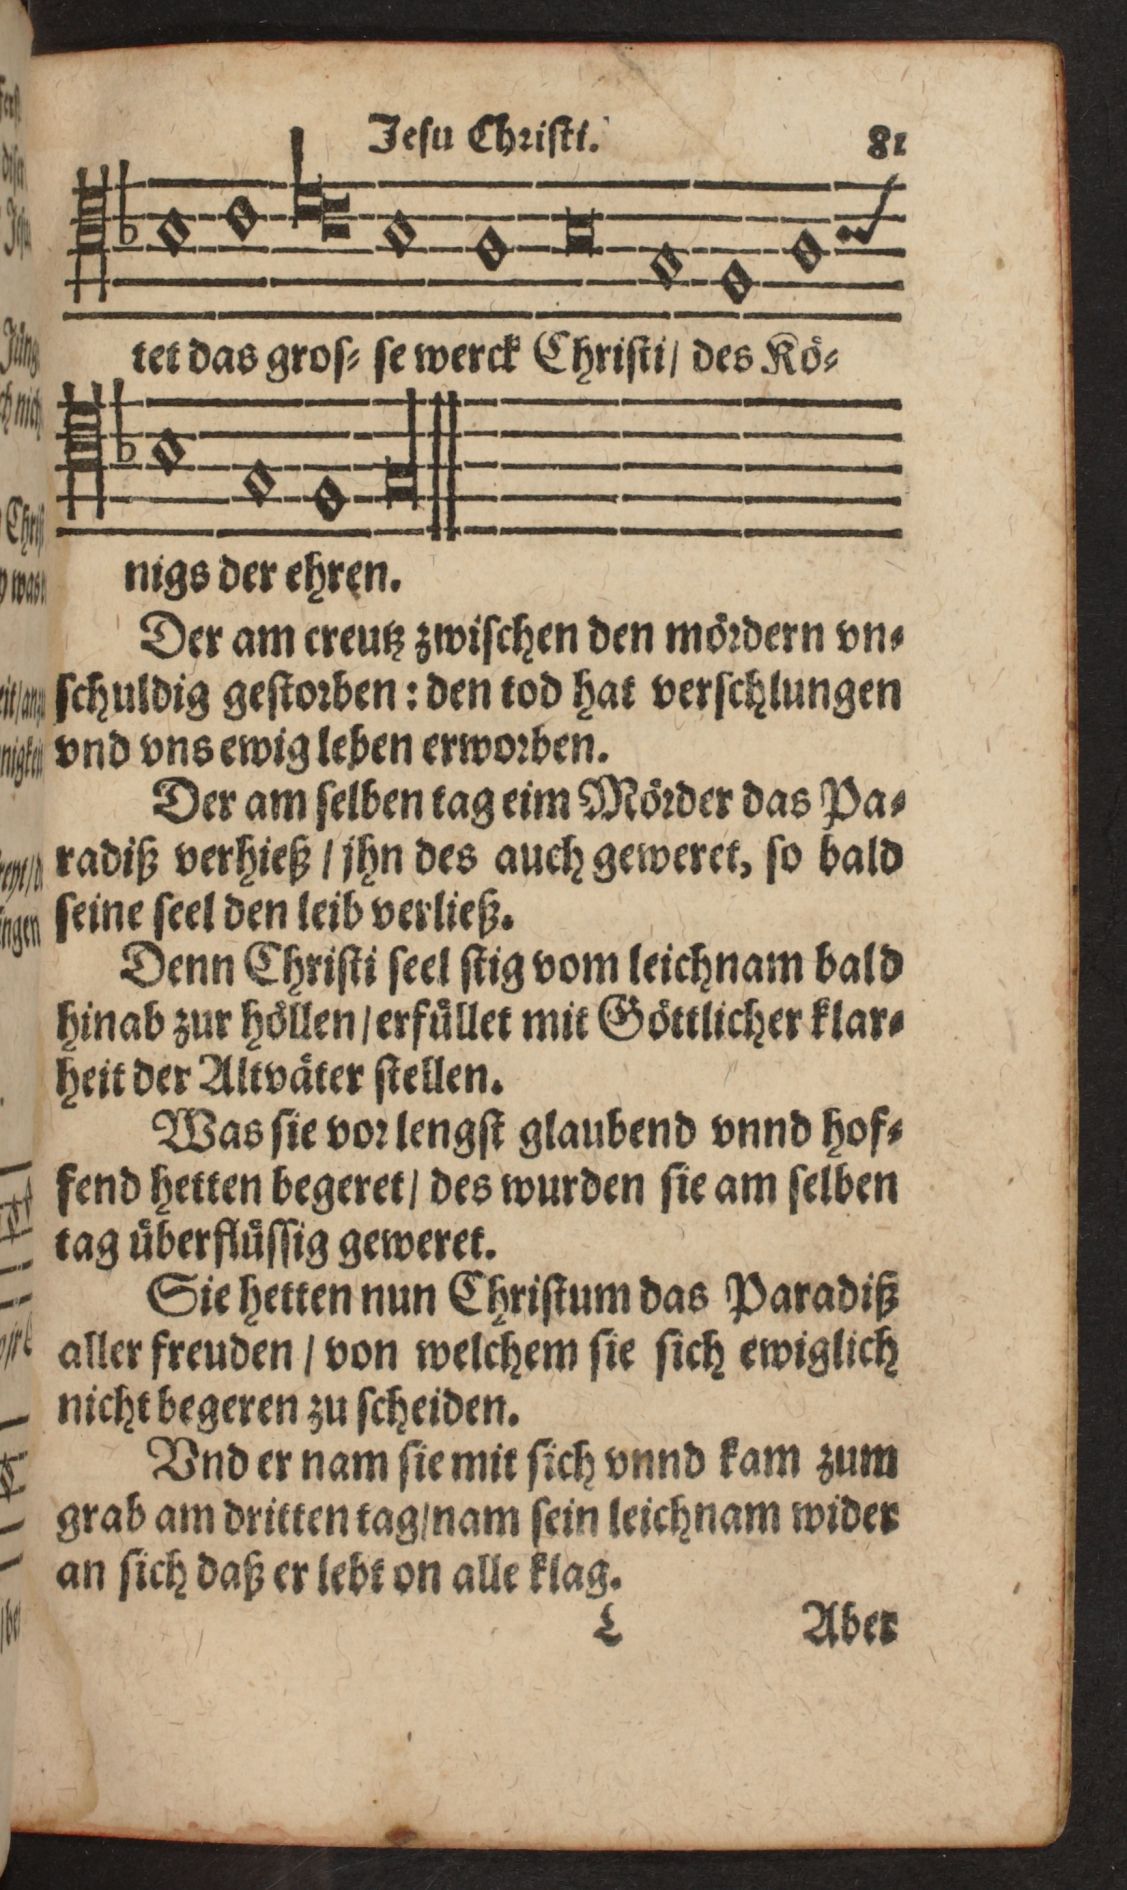 Jesu Christi. 81
tet das gros- se werck Christi/ des Kö-
nigs der ehren.
Der am creutz zwischen den mördern vn-
schuldig gestorben: den tod hat verschlungen
vnd vns ewig leben erworben.
Der am selben tag eim Mörder das Pa-
radiß verhieß / jhn des auch geweret, so bald
seine seel den leib verließ.
Denn Christi seel stig vom leichnam bald
hinab zur höllen/ erfüllet mit Göttlicher klar-
heit der Altväter stellen.
Was sie vor lengst glaubend vnnd hof-
fend hetten begeret/ des wurden sie am selben
tag überflüssig geweret.
Sie hetten nun Christum das Paradiß
aller freuden / von welchem sie sich ewiglich
nicht begeren zu scheiden.
Vnd er nam sie mit sich vnnd kam zum
grab am dritten tag/nam sein leichnam wider
an sich daß er lebt on alle klag.
L Aber